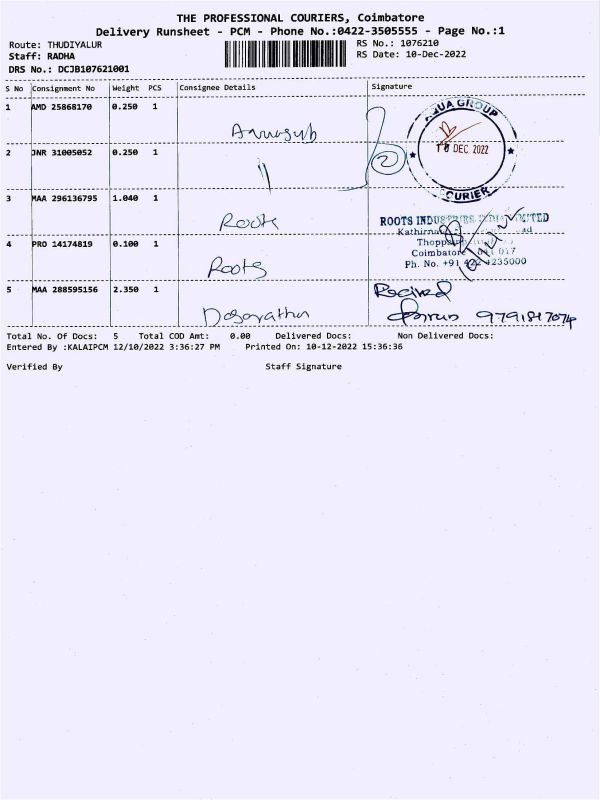 THE PROFESSIONAL COURIERS, Coimbatore
Delivery Runsheet - PCM - Phone No.:0422-3505555 - Page No.:1
Route: THUDIYALUR
RS No.: 1076210
Staff: RADHA
RS Date: 10-Dec-2022
DRS No.: DCJB107621001
S No Consignment No Weight PCS Consignee Details Signature
1 AMD 25868170 0.250 1
AQUA GROUP
10 DEC 2022
2 JNR 31005052 0.250 1 "
2
CURIER
3 MAA 296136795 1.040 1 Roots
ROOTS INDUSTRIES INDIA LIMITED
4 PRO 14174819 0.100 1 Roots
Coimbatore 641 017
Ph. No. +91 422 4235000
5 MAA 288595156 2.350 1 Dasarathan
Recived
9791817074
Total No. Of Docs: 5 Total COD Amt: 0.00 Delivered Docs: Non Delivered Docs:
Entered By :KALAIPCM 12/10/2022 3:36:27 PM Printed On: 10-12-2022 15:36:36
Verified By Staff Signature